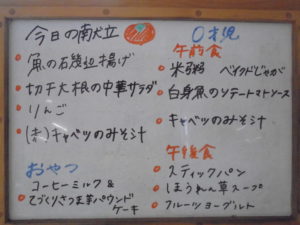 今日の献立
魚の石垣揚げ
切干大根の中華サラダ
りんご
(赤)キャベツのみそ汁
おやつ
コーヒーミルク&
てづくりさつま芋パウンド
ケーキ
0才児
午前食
米粥 ベイクドじゃが
白身魚のソテートマトソース
キャベツのみそ汁
午後食
スティックパン
ほうれん草スープ
フルーツヨーグルト